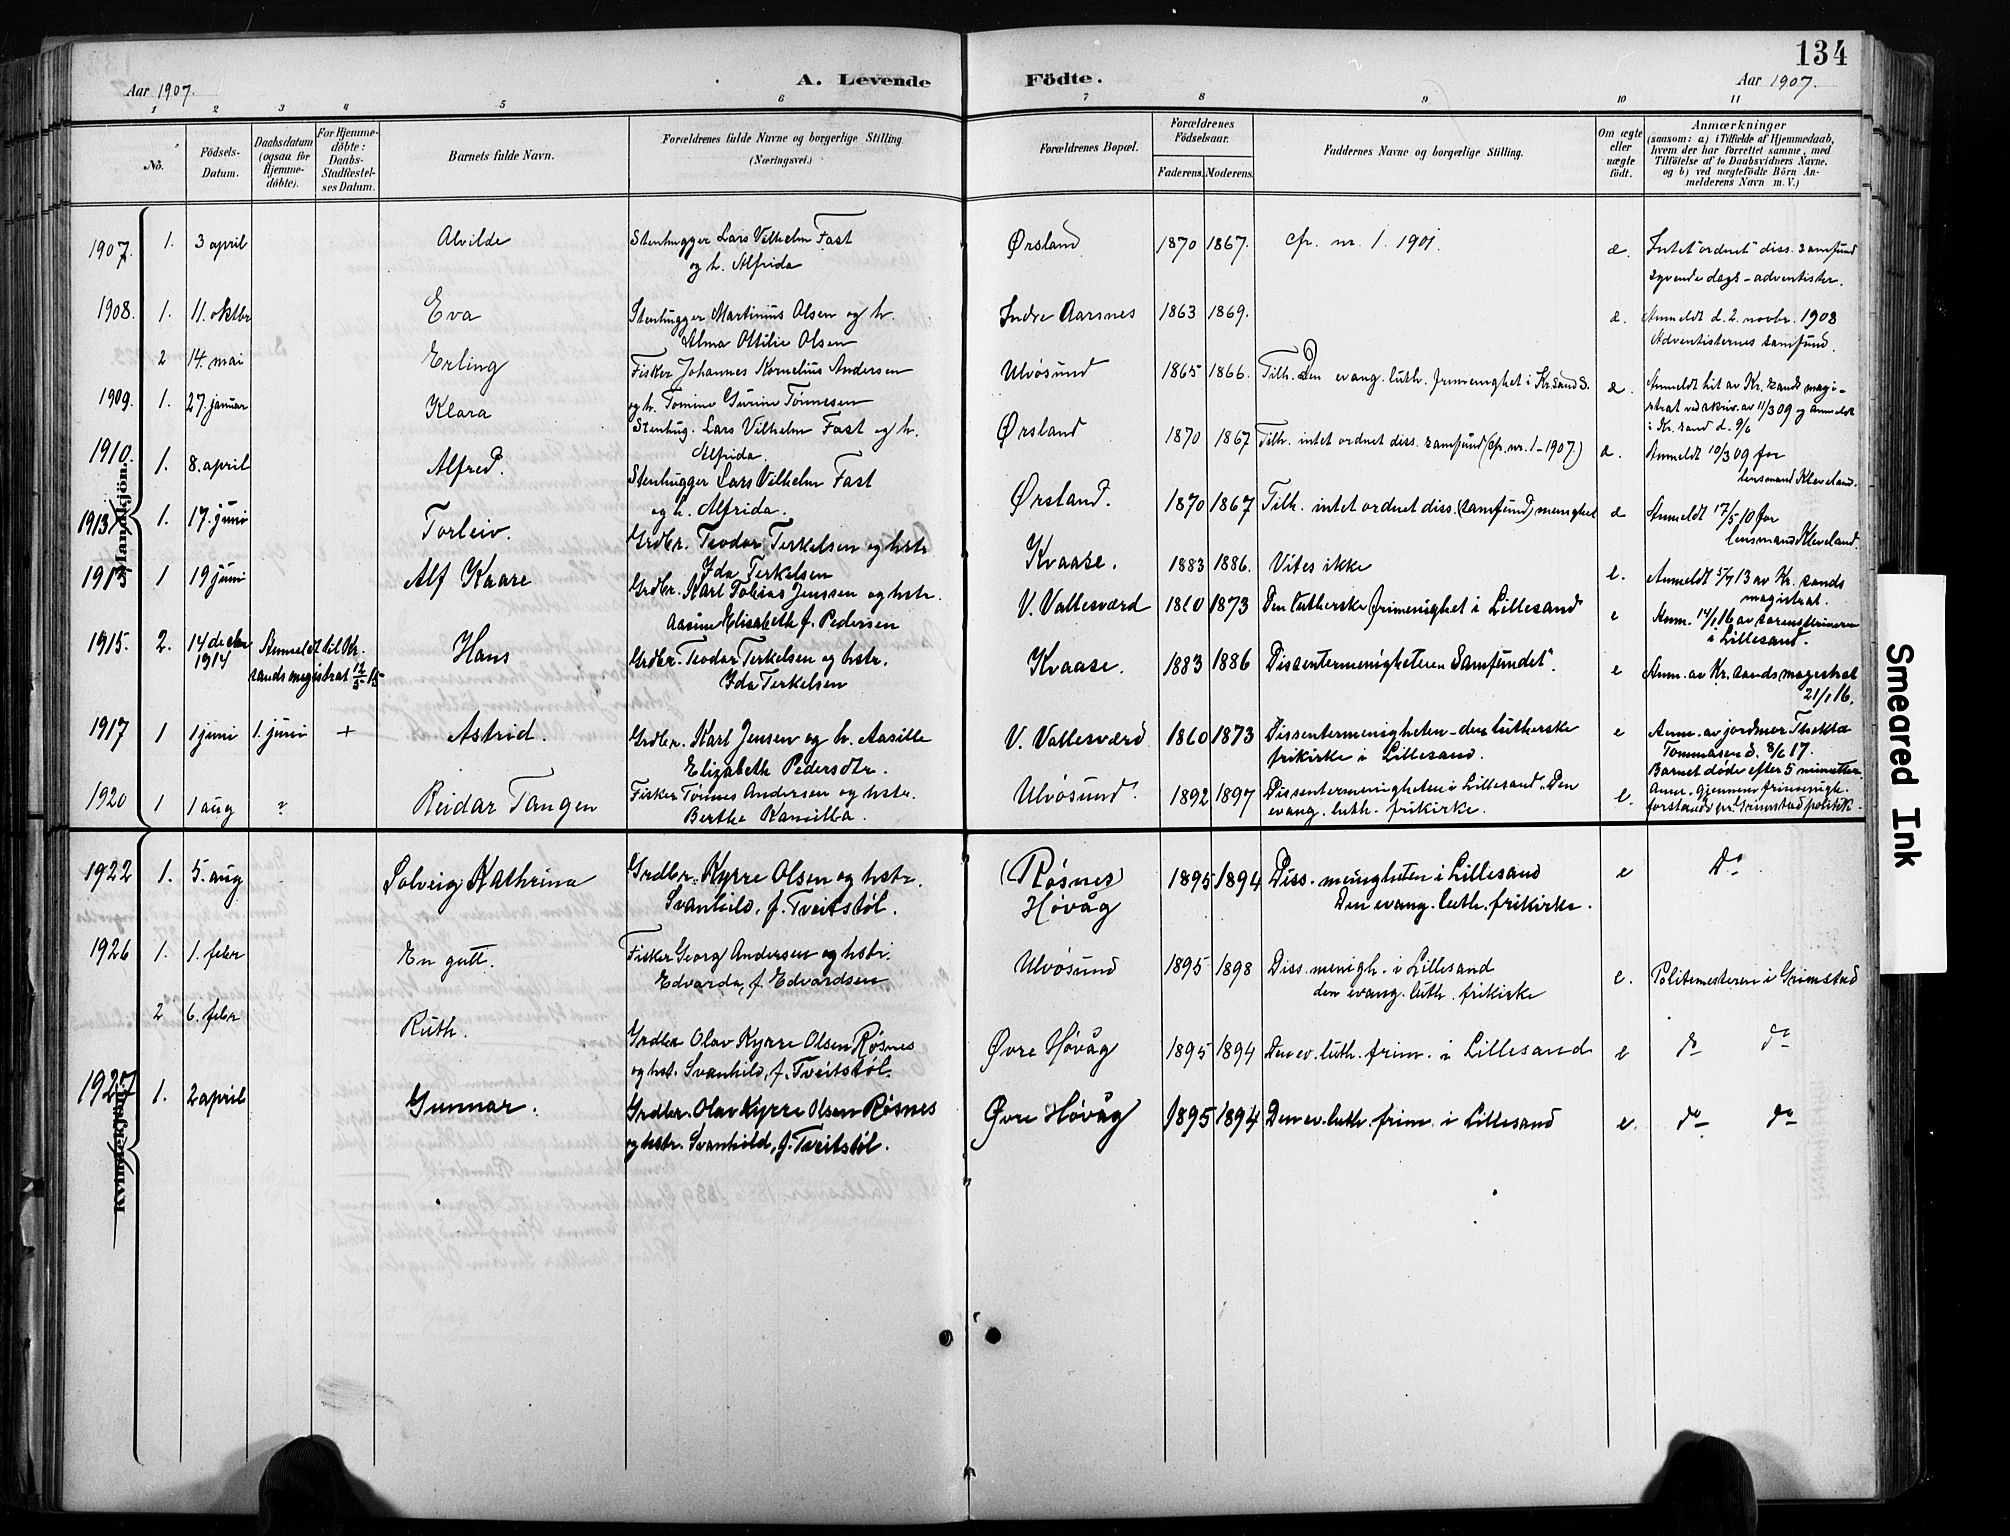 134
Aar 1907.
A. Levende Födte.
Aar 1907.
1 2 3 4 5 6 7 8 9 10 11
No.
Födsels-Datum.
Daabsdatum (ogsaa för Hjemme-döbte).
For Hjemme-döbte: Daabs-Stadfæstel-ses Datum.
Barnets fulde Navn.
Forældrenes fulde Navne og borgerlige Stilling
(Næringsvei.)
Forældrenes Bopæl.
Forældrenes Födselsaar.
Faderens. Moderens.
Faddernes Navne og borgerlige Stilling.
Om ægte eller uægte födt.
Anmærkninger
(saasom: a) i Tilfælde af Hjemmedaab,
hvem der har forrettet samme, med
Tilföielse af to Daabsvidners Navne.
og b) ved uægtefödte Börn An-
melderens Navn m. V.)
Mandkjön.
1907. 1. 3 april Alvilde Stenhugger Lars Vilhelm Fast Ørsland 1870 1867. cfr. nr. 1. 1901. æ. Intet "ordnet" diss. samfund
og h. Alfrida syvende dags-adventister.
1908. 1. 11. oktbr Eva Stenhugger Martinius Olsen og h. Indre Aarsnes 1863 1869. æ. Anmeldt d. 2. novbr. 1908
Alma Ottilie Olsen Adventisternes samfund.
2 14. mai Erling Fisker Johannes Kornelius Andersen Ulvøsund 1865 1866. Tilh. Den evang. luth. frimenghet i Kr.sand S. æ. Anmeldt hit av Kr.sands magi-
og h. Tomine Gurine Tønnesen strat ved skriv. av 11/3 09 og anmeldt
i Kr.sand d. 9/6
1909. 1. 27. januar Klara Stenhug. Lars Vilhelm Fast og h. Ørsland 1870 1867 Tilh. intet ordnet diss. samfund (cfr. nr. 1-1907.) æ. Anmeldt 10/3 09 for
Alfrida. lensmand Kleveland.
1910. 1. 8. april Alfred. Stenhugger Lars Vilhelm Fast Ørsland. 1870 1867 Tilh. intet ordnet diss. (samfund) menighet æ Anmeldt 17/5 10 for
og h. Alfrida. lensmand Kleveland.
1913 1. 17. juni Torleiv. Grdbr. Teodor Terkelsen og hstr Kvaase. 1883 1886. Vites ikke e. Anmeldt 5/7 13 av Kr.sands
Ida Terkelsen magistrat.
1915 1 19 juni Alf Kaare Grdbr. Karl Tobias Jenssen og hstr. V. Vallesværd 1860 1873 Den lutherske frimenighet i Lillesand e Anm. 14/1 16 av
Aasine Elisabeth f. Pedersen i Lillesand.
1915. 2. 14 decbr 1914 Anmeldt til Kr.sands magistrat 12/3 15 Hans Grdbr. Teodor Terkelsen og hstr. Kvaase. 1883 1886 Dissentermenigheten "Samfundet". e Anm. av Kr.sands magistrat
Ida Terkelsen 21/1 16.
1917 1 1 juni 1. juni + Astrid. Grdbr. Karl Jensen og h. Aasille V. Vallesværd 1860 1873 Dissentermenigheten - den lutherske e Anm. av jordmor Thekla
Elizabeth Pedersdtr. frikirke i Lillesand. Tommasen d. 8/6 17.
Barnet døde efter 5 minutter.
1920 1 1 aug ? Reidar Tangen Fisker Tønnes Andersen og hstr. Ulvøsund. 1892 1897 Dissentermenigheten i Lillesand. Den e. Anm. gjennem frimenigh.
Berthe Kamilla. evang. luth. frikirke. forstander pr. Grimstad politik.
Kvindekjön.
1922 1. 5. aug Solveig Kathrina Grdbr. Kyrre Olsen og hstr. (Røsnes) 1895 1894 Diss. menigheten i Lillesand e Do
Svanhild, f. Tveitstøl. Høvåg Den evang. luth. frikirke.
1926 1. 1. febr En gutt. Fisker Georg Andersen og hstr. Ulvøsund 1895 1898 Diss. menigh. i Lillesand e. Politimesteren i Grimstad
Edvarda, f. Edvardsen den evang. luth. frikirke
2 6. febr Ruth. Grdbr Olav Kyrre Olsen Røsnes Øvre Høvåg 1895 1894 Den ev. luth. frim. i Lillesand e do do
og hst. Svanhild, f. Tveitstøl.
1927 1. 2 april Gunnar. Grdbr. Olav Kyrre Olsen Røsnes Øvre Høvåg 1895 1894 Den ev. luth. frim. i Lillesand e. do do
og hstr. Svanhild, f. Tveitstøl.
Smeared Ink